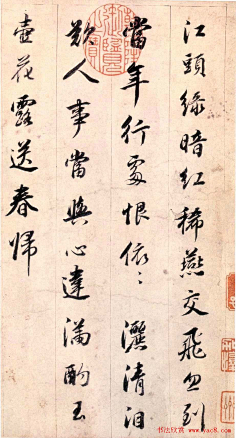 江頭綠暗紅稀燕交飛忽到
當年行處恨依〻灑清淚
歎人事當與心違滿酌玉
壺花露送春歸
书法欣赏 www.yac8.com